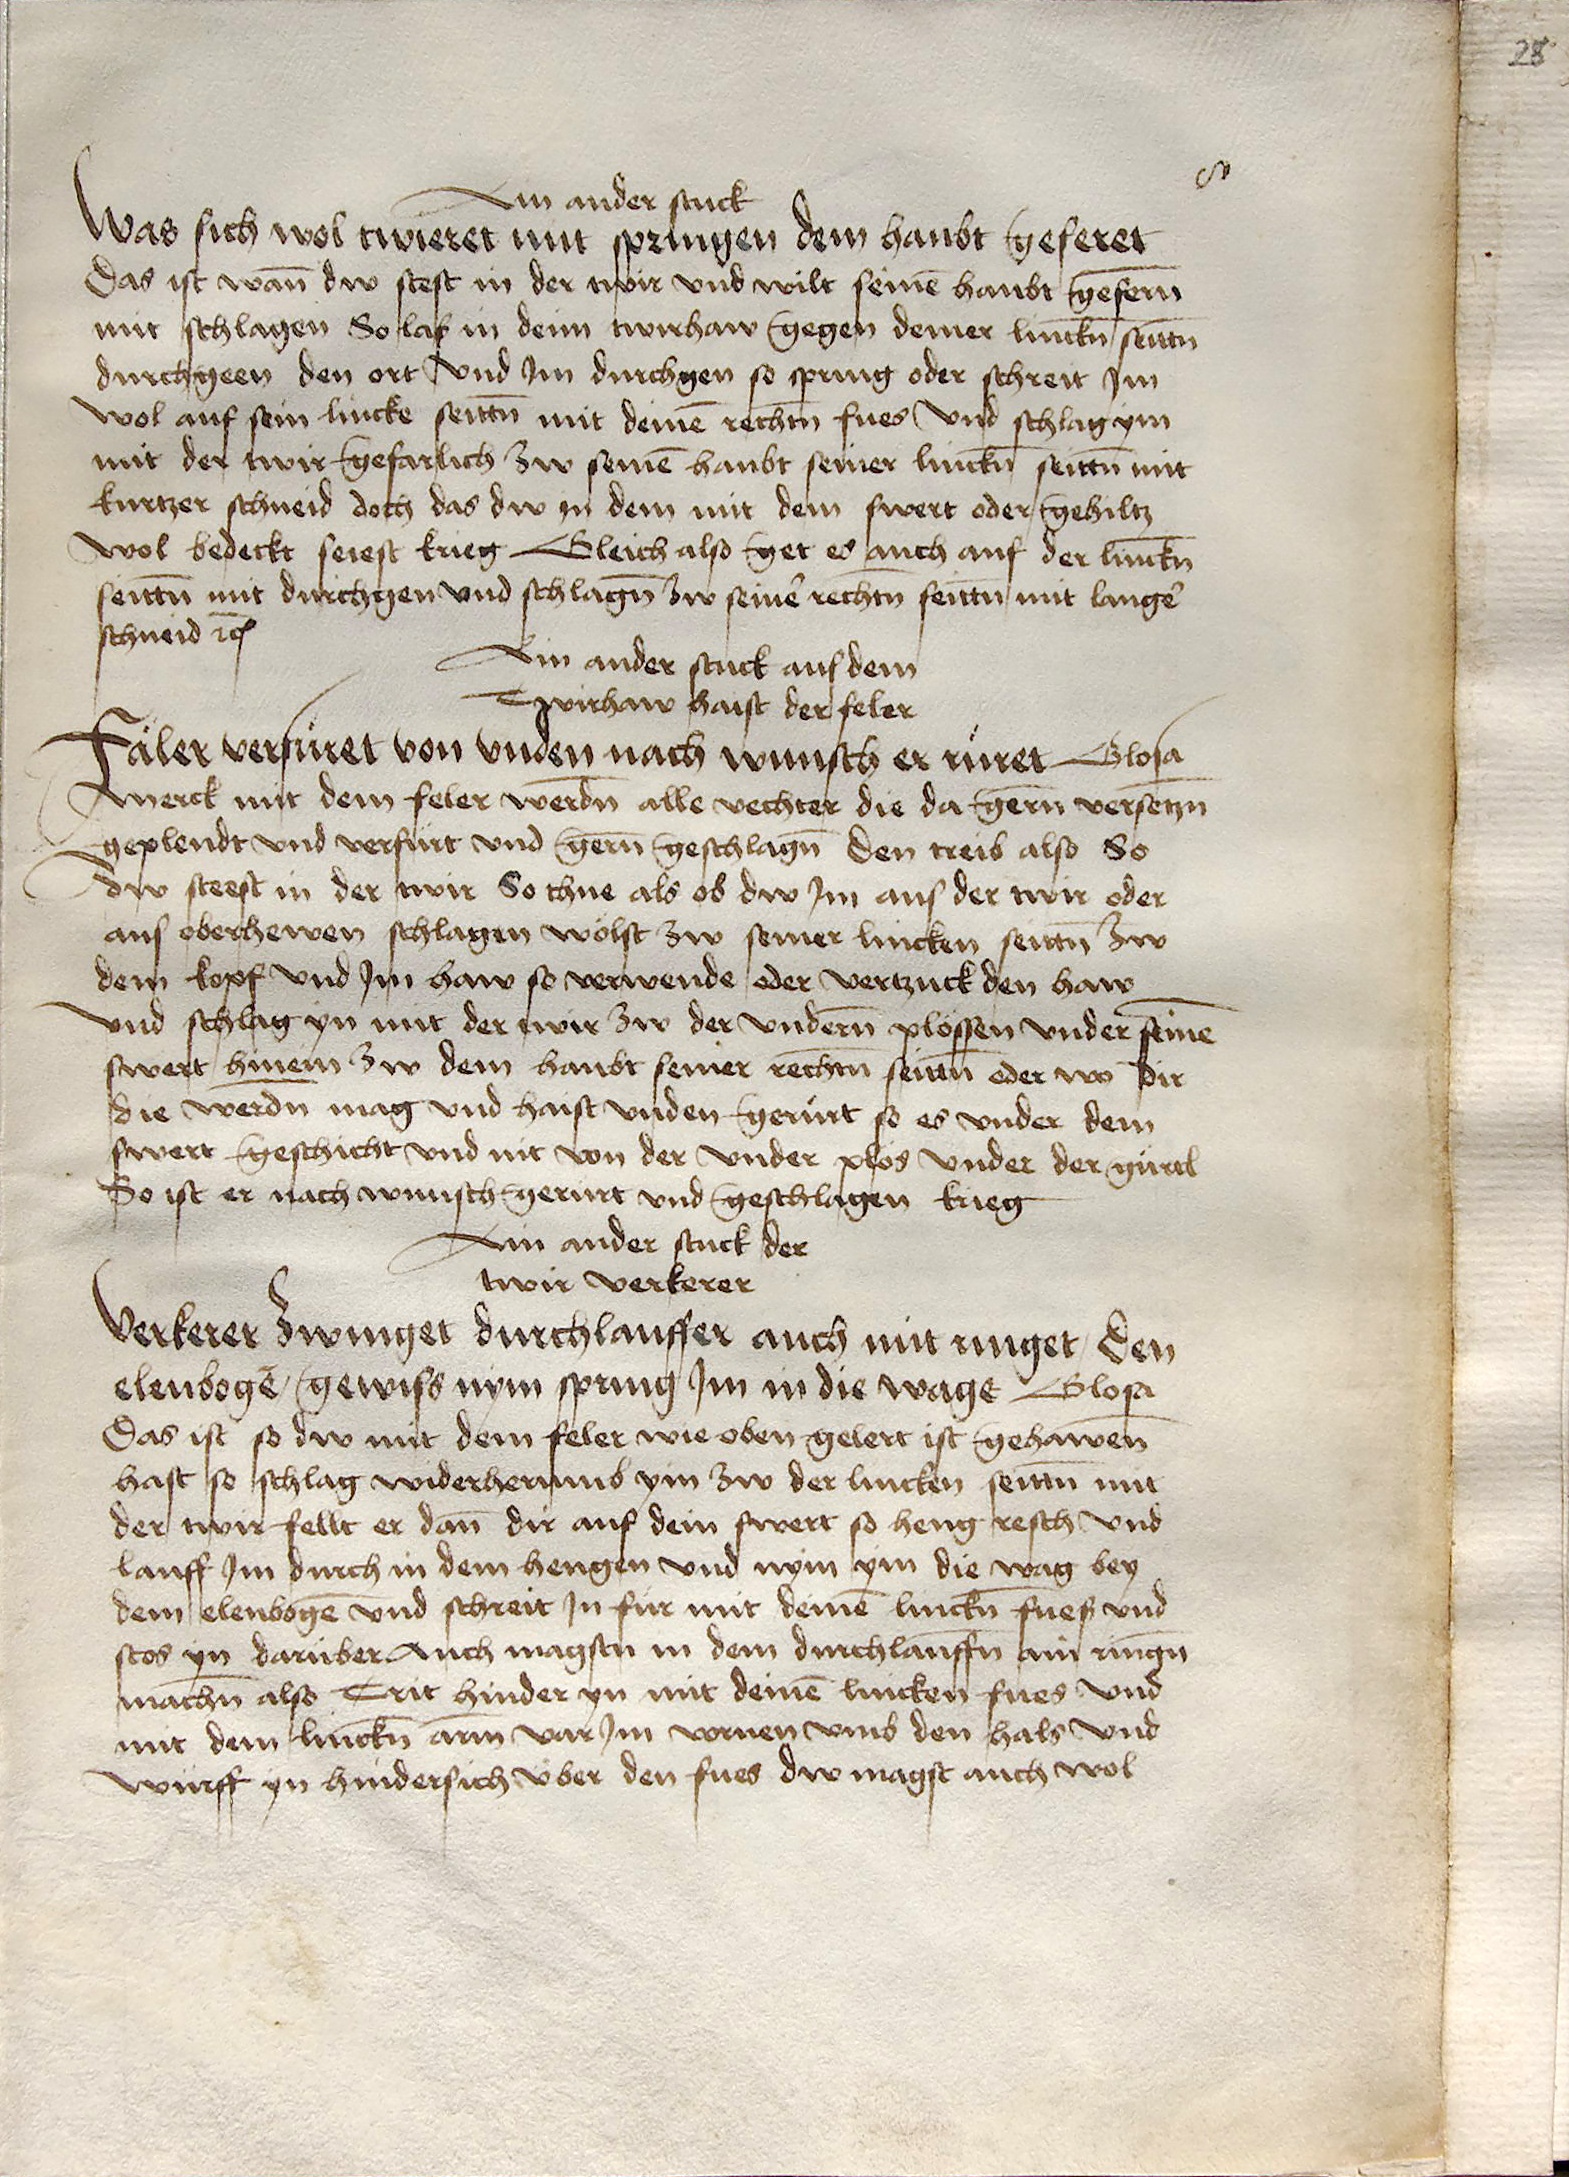 28
Ain ander stuck
Was sich wol twieret mit springen dem haubt geferet
Das ist wan̄ dw stest in der twir vnd wilt seinē haubt gefern̄
mit schlagen So las in deim twirhaw gegen deiner linckn̄ seittn̄
durchgeen den ort Vnd Jm durchgen so spring oder schreit Jm
wol auf sein lincke seittn̄ mit deinē rechtn̄ fues Vnd schlag ym
mit der twir gefarlich zw seinē haubt seiner linckn̄ seittn̄ mit
kurtzer schneid doch das dw in dem mit dem swert oder gehiltz
wol bedeckt seiest krieg Gleich also get es auch auf der linckn̄
seittn̄ mit durchgen vnd schlagn̄ zw seinē rechtn̄ seittn̄ mit langē
schneid ꝛc̄
Ain ander stuck aus dem
Twirhaw haist der feler
Fäler verfüret von vnden nach wunsch er rüret Glosa
Merck mit dem feler werdn̄ alle vechter die da gern̄ versetzn̄
geplendt vnd verfürt vnd gern̄ geschlagn̄ Den treib also So
dw steest in der twir So thue als ob dw Jm aus der twir oder
aus oberhewen schlagen wölst zw seiner lincken seittn̄ zw
dem kopf vnd Jm haw so verwende oder vertzuck den haw
vnd schlag yn mit der twir zw der vndern̄ plössen vnder seinē
swert hinein zw dem haubt seiner rechtn̄ seittn̄ oder wo dir
die werdn̄ mag vnd haist vnden gerürt so es vnder dem
swert geschicht vnd nit von der vnder plös vnder der gürtl
So ist er nach wunsch gerürt vnd geschlagen krieg
Ain ander stuck der
twir verkerer
Verkerer zwinget durchlauffer auch mit ringet Den
elenbogē gewiss nym spring Jm in die wage Glosa
Das ist so dw mit dem feler wie oben gelert ist gehawen̄
hast so schlag widerherumb ym zw der lincken seittn̄ mit
der twir fellt er dan̄ dir auf dein swert so heng resch vnd
lauff Jm durch in dem hengen vnd nym ym die wag bey
dem elenbogē vnd schreit Jn für mit deinē linckn̄ fues vnd
stos yn darüber Auch magstu in dem durchlauffn̄ ain ringn̄
machn̄ also Trit hinder yn mit deinē lincken fues vnd
mit dem linckn̄ arm var Jm vornen vmb den hals vnd
würff yn hindersich über den fues dw magst auch wol